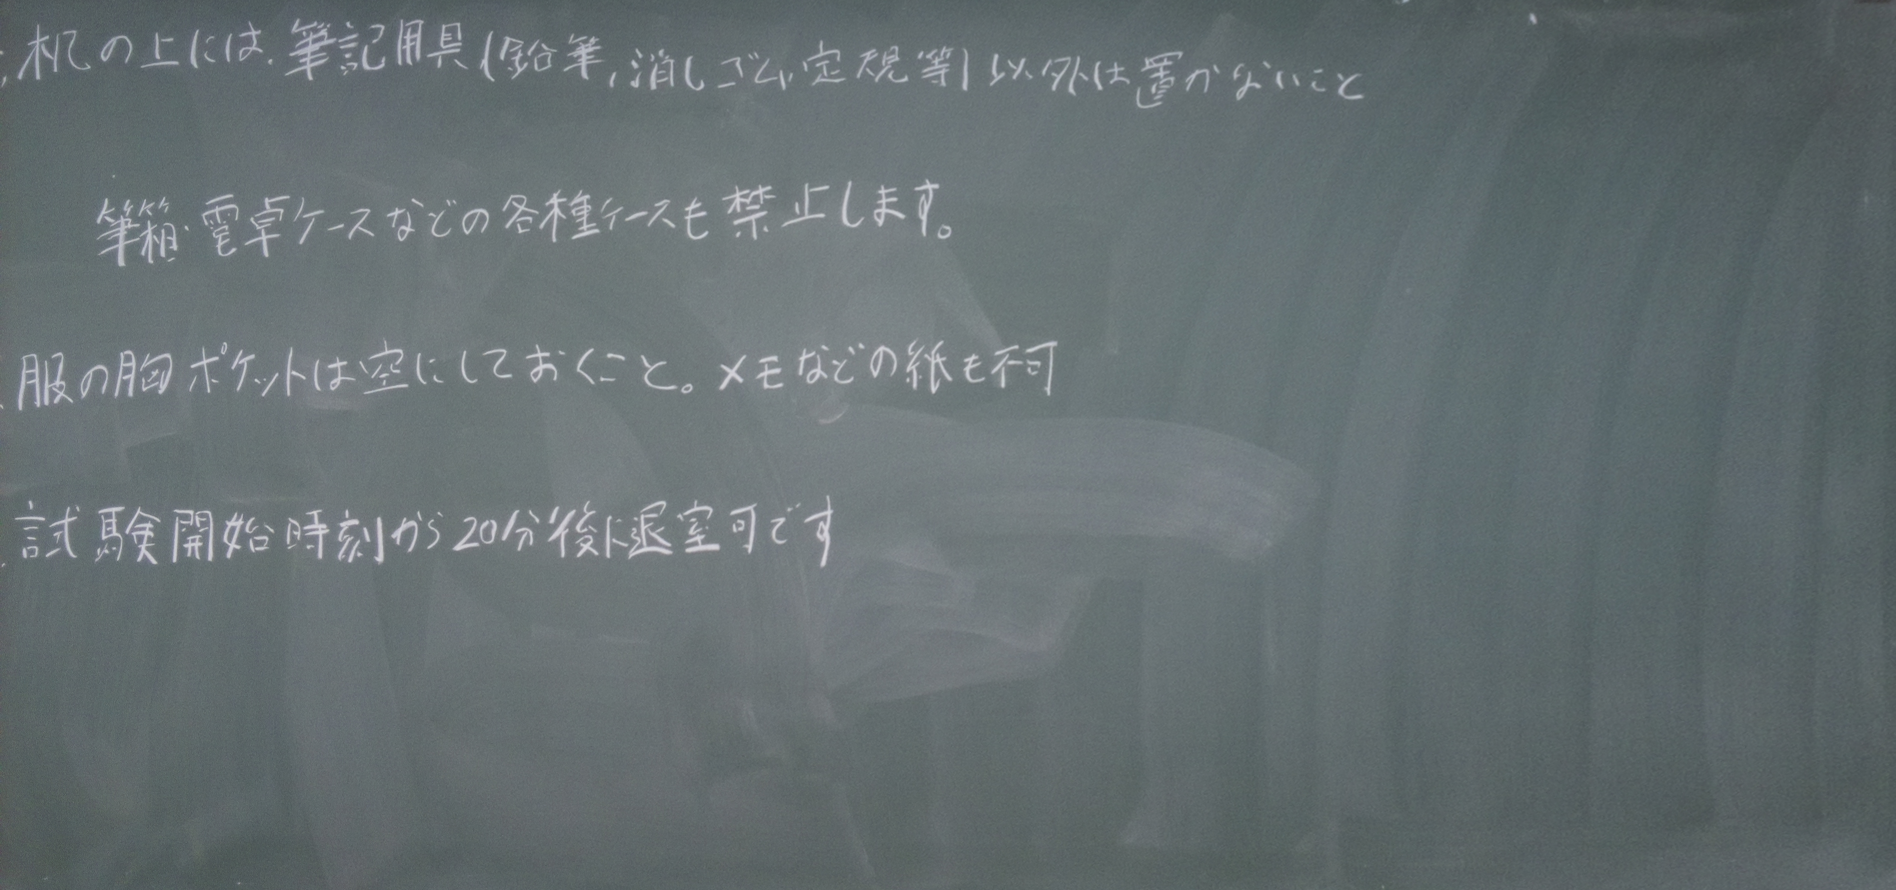 机の上には、筆記用具(鉛筆,消しゴム,定規等)以外は置かないこと
筆箱・電卓ケースなどの各種ケースも禁止します。
服の胸ポケットは空にしておくこと。メモなどの紙も不可
試験開始時刻から20分後に退室可です